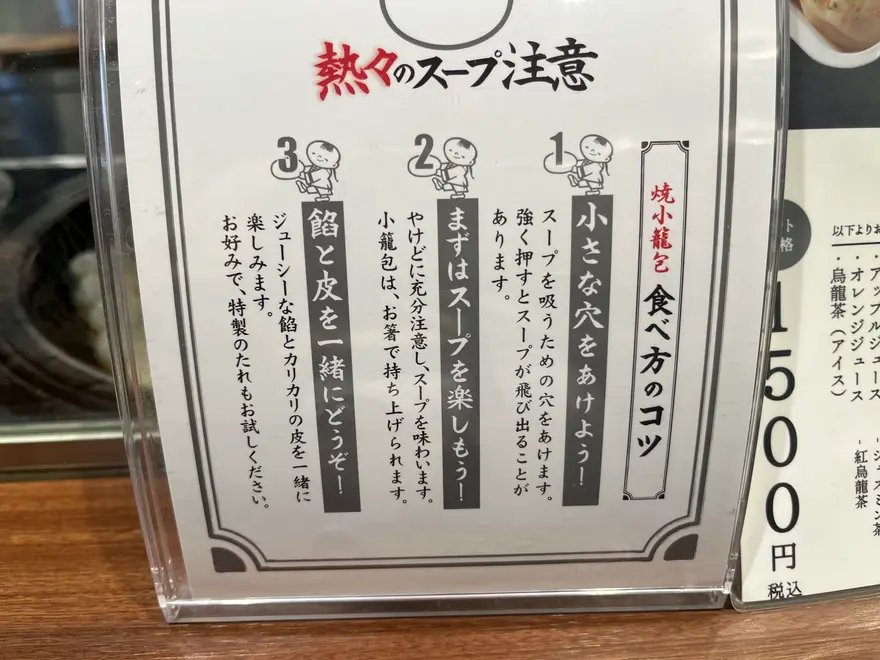 熱々のスープ注意
焼小籠包 食べ方のコツ
1
小さな穴をあけよう！
スープを吸うための穴をあけます。
強く押すとスープが飛び出ることが
あります。
2
まずはスープを楽しもう！
やけどに充分注意し、スープを味わいます。
小籠包は、お箸で持ち上げられます。
3
餡と皮を一緒にどうぞ！
ジューシーな餡とカリカリの皮を一緒に
楽しみます。
お好みで、特製のたれもお試しください。
1500円
税込
以下よりお
・アップルジュース
・オレンジジュース
・烏龍茶（アイス）
・ジャスミン茶
・紅烏龍茶